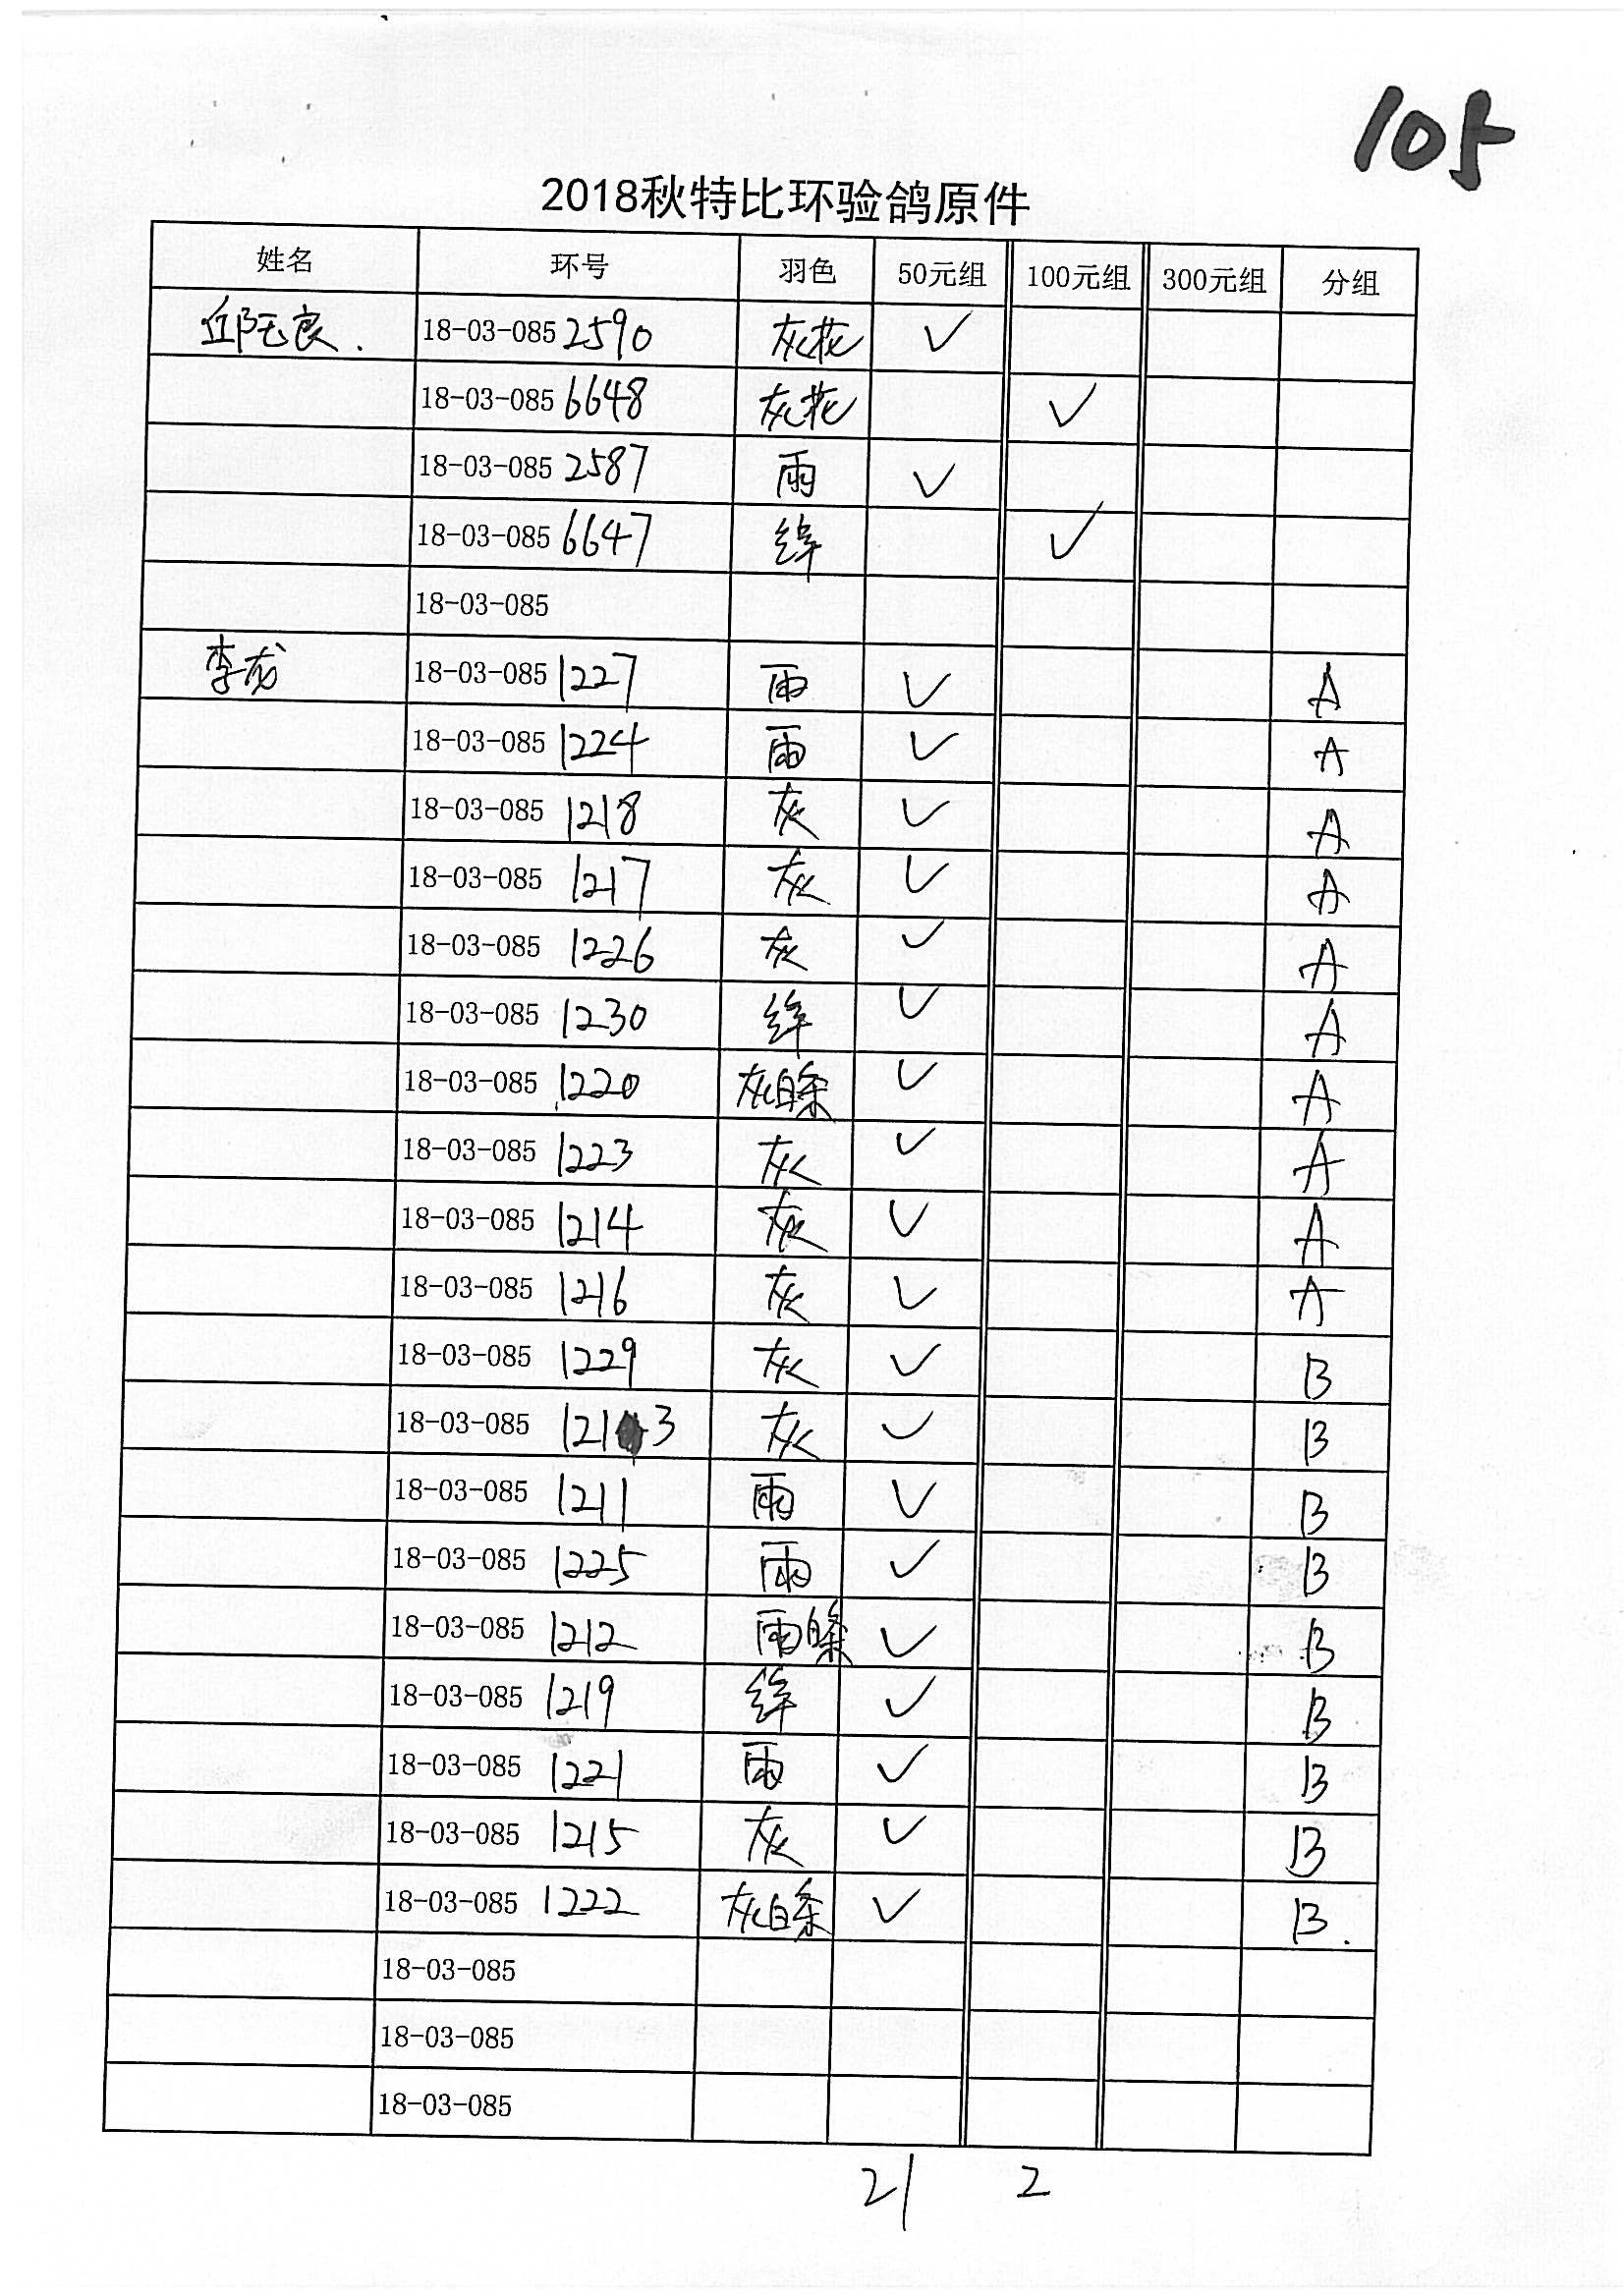 105
2018秋特比环验鸽原件
姓名 环号 羽色 50元组 100元组 300元组 分组
邱玉良. 18-03-085 2590 灰花 ✓
18-03-085 6648 灰花 ✓
18-03-085 2587 雨 ✓
18-03-085 6647 绛 ✓
18-03-085
李龙 18-03-085 1227 雨 ✓ A
18-03-085 1224 雨 ✓ A
18-03-085 1218 灰 ✓ A
18-03-085 1217 灰 ✓ A
18-03-085 1226 灰 ✓ A
18-03-085 1230 绛 ✓ A
18-03-085 1220 灰白条 ✓ A
18-03-085 1223 灰 ✓ A
18-03-085 1214 灰 ✓ A
18-03-085 1216 灰 ✓ A
18-03-085 1229 灰 ✓ B
18-03-085 1213 灰 ✓ B
18-03-085 1211 雨 ✓ B
18-03-085 1225 雨 ✓ B
18-03-085 1212 雨白条 ✓ B
18-03-085 1219 绛 ✓ B
18-03-085 1221 雨 ✓ B
18-03-085 1215 灰 ✓ B
18-03-085 1222 灰白条 ✓ B.
18-03-085
18-03-085
18-03-085
21 2